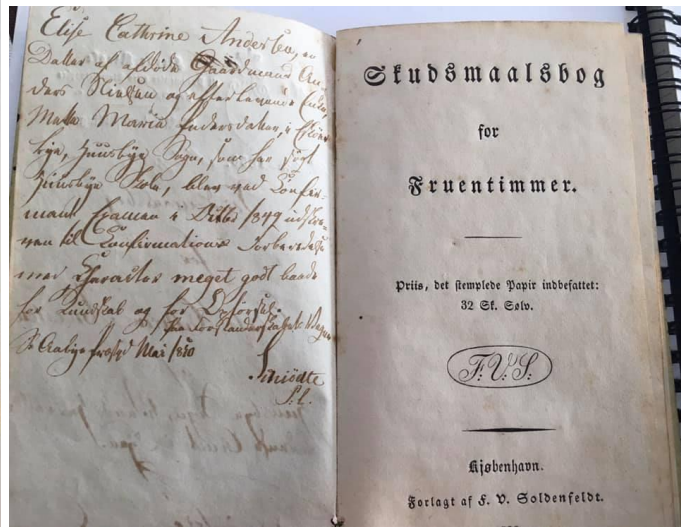 Elise Cathrine Andersen, en
Datter af afdøde Gaardmand An-
ders Nielsen og efterlevende Enke,
Mette Maria Andersdatter, i
Sogn, som har søgt
Skole, blev ved Confir-
mant Examen i Octbr 1849 udskre-
ven til Confirmations Forberedelse
med Charakter meget godt baade
for Kundskab og for Opførsel.
Mai 1850
Schiødte
Skudsmaalsbog
for
Fruentimmer.
Priis, det stemplede Papir indbefattet:
32 Sk. Sølv.
F. V. S.
Kjøbenhavn.
Forlagt af F. V. Soldenfeldt.